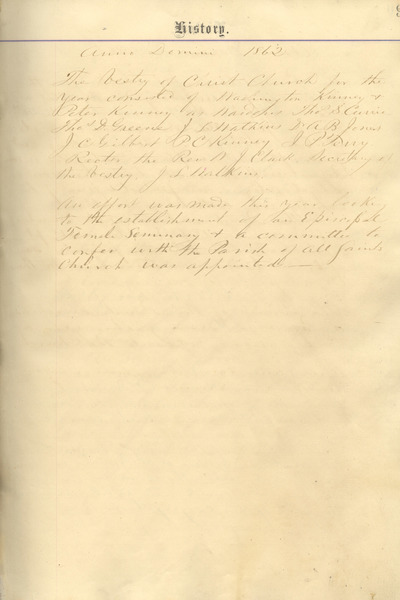 History.
Anno Domini 1862
The Vestry of Christ Church for the
year consisted of Washington Kinney &
Peter Kinney as Wardens Thos S Currie
Thos D. Greene J L Watkins Dr A B Jones
J C Gilbert P C Kinney J P Terry
Rector the Rev. N J Clark Secretary of
the Vestry, J L Watkins
An effort was made this year looking
to the establishment of an Episcopal
Female Seminary & a committee to
confer with the Parish of All Saints
Church was appointed —